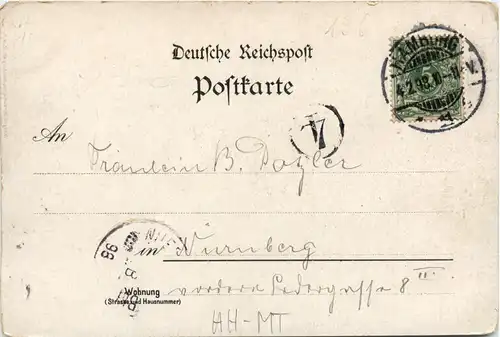 Deutsche Reichspost
Postkarte
HAMBURG
4.2.98.10-11 V.
An
Fräulein B. Dotzler
in Nürnberg
Wohnung
(Strasse und Hausnummer)
vordere Ledergasse 8 II.
HH-MT